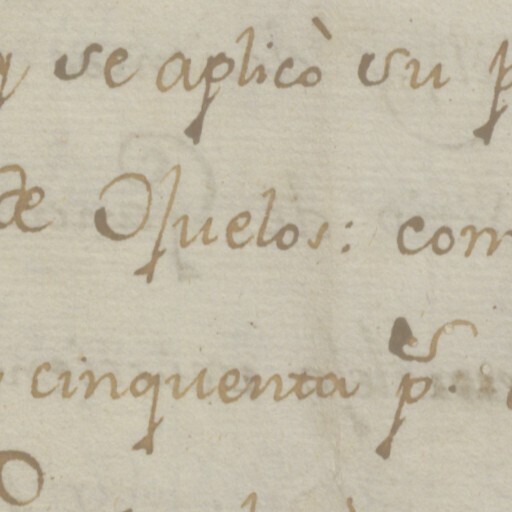 se aplicò su
de Ojuelos: com
cinquenta p.es